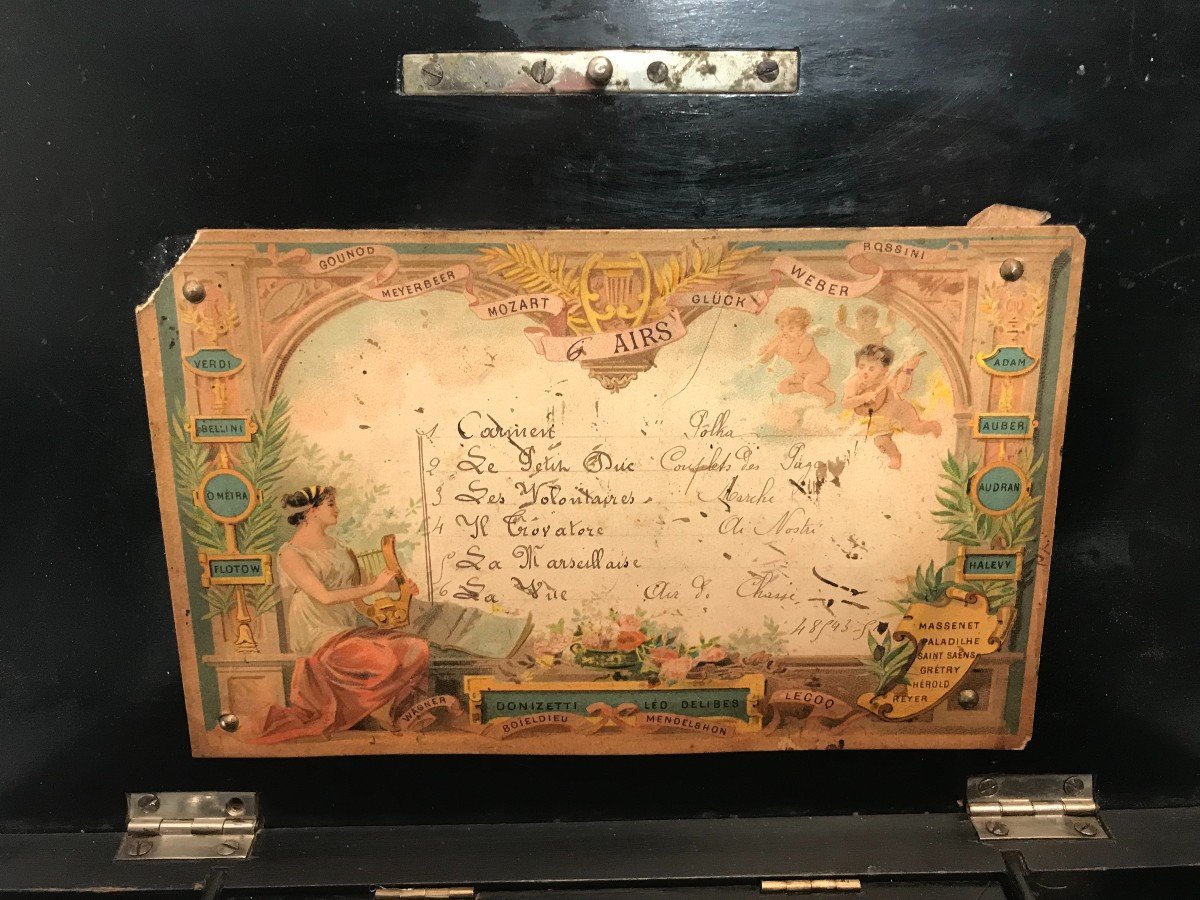 GOUNOD
MEYERBEER
MOZART
GLÜCK
WEBER
ROSSINI
6 AIRS
VERDI
BELLINI
O. MÉTRA
FLOTOW
ADAM
AUBER
AUDRAN
HALEVY
1 Carmen " Polka
2 Le Petit Duc Couplets des
3 Les Volontaires Marche
4 Il Trovatore Ai Nostri
5 La Marseillaise
6 La Air de Chasse
MASSENET
PALADILHE
SAINT SAËNS
GRÉTRY
HÉROLD
REYER
WAGNER
DONIZETTI LÉO DELIBES
BOÏELDIEU MENDELSHON
LECOQ